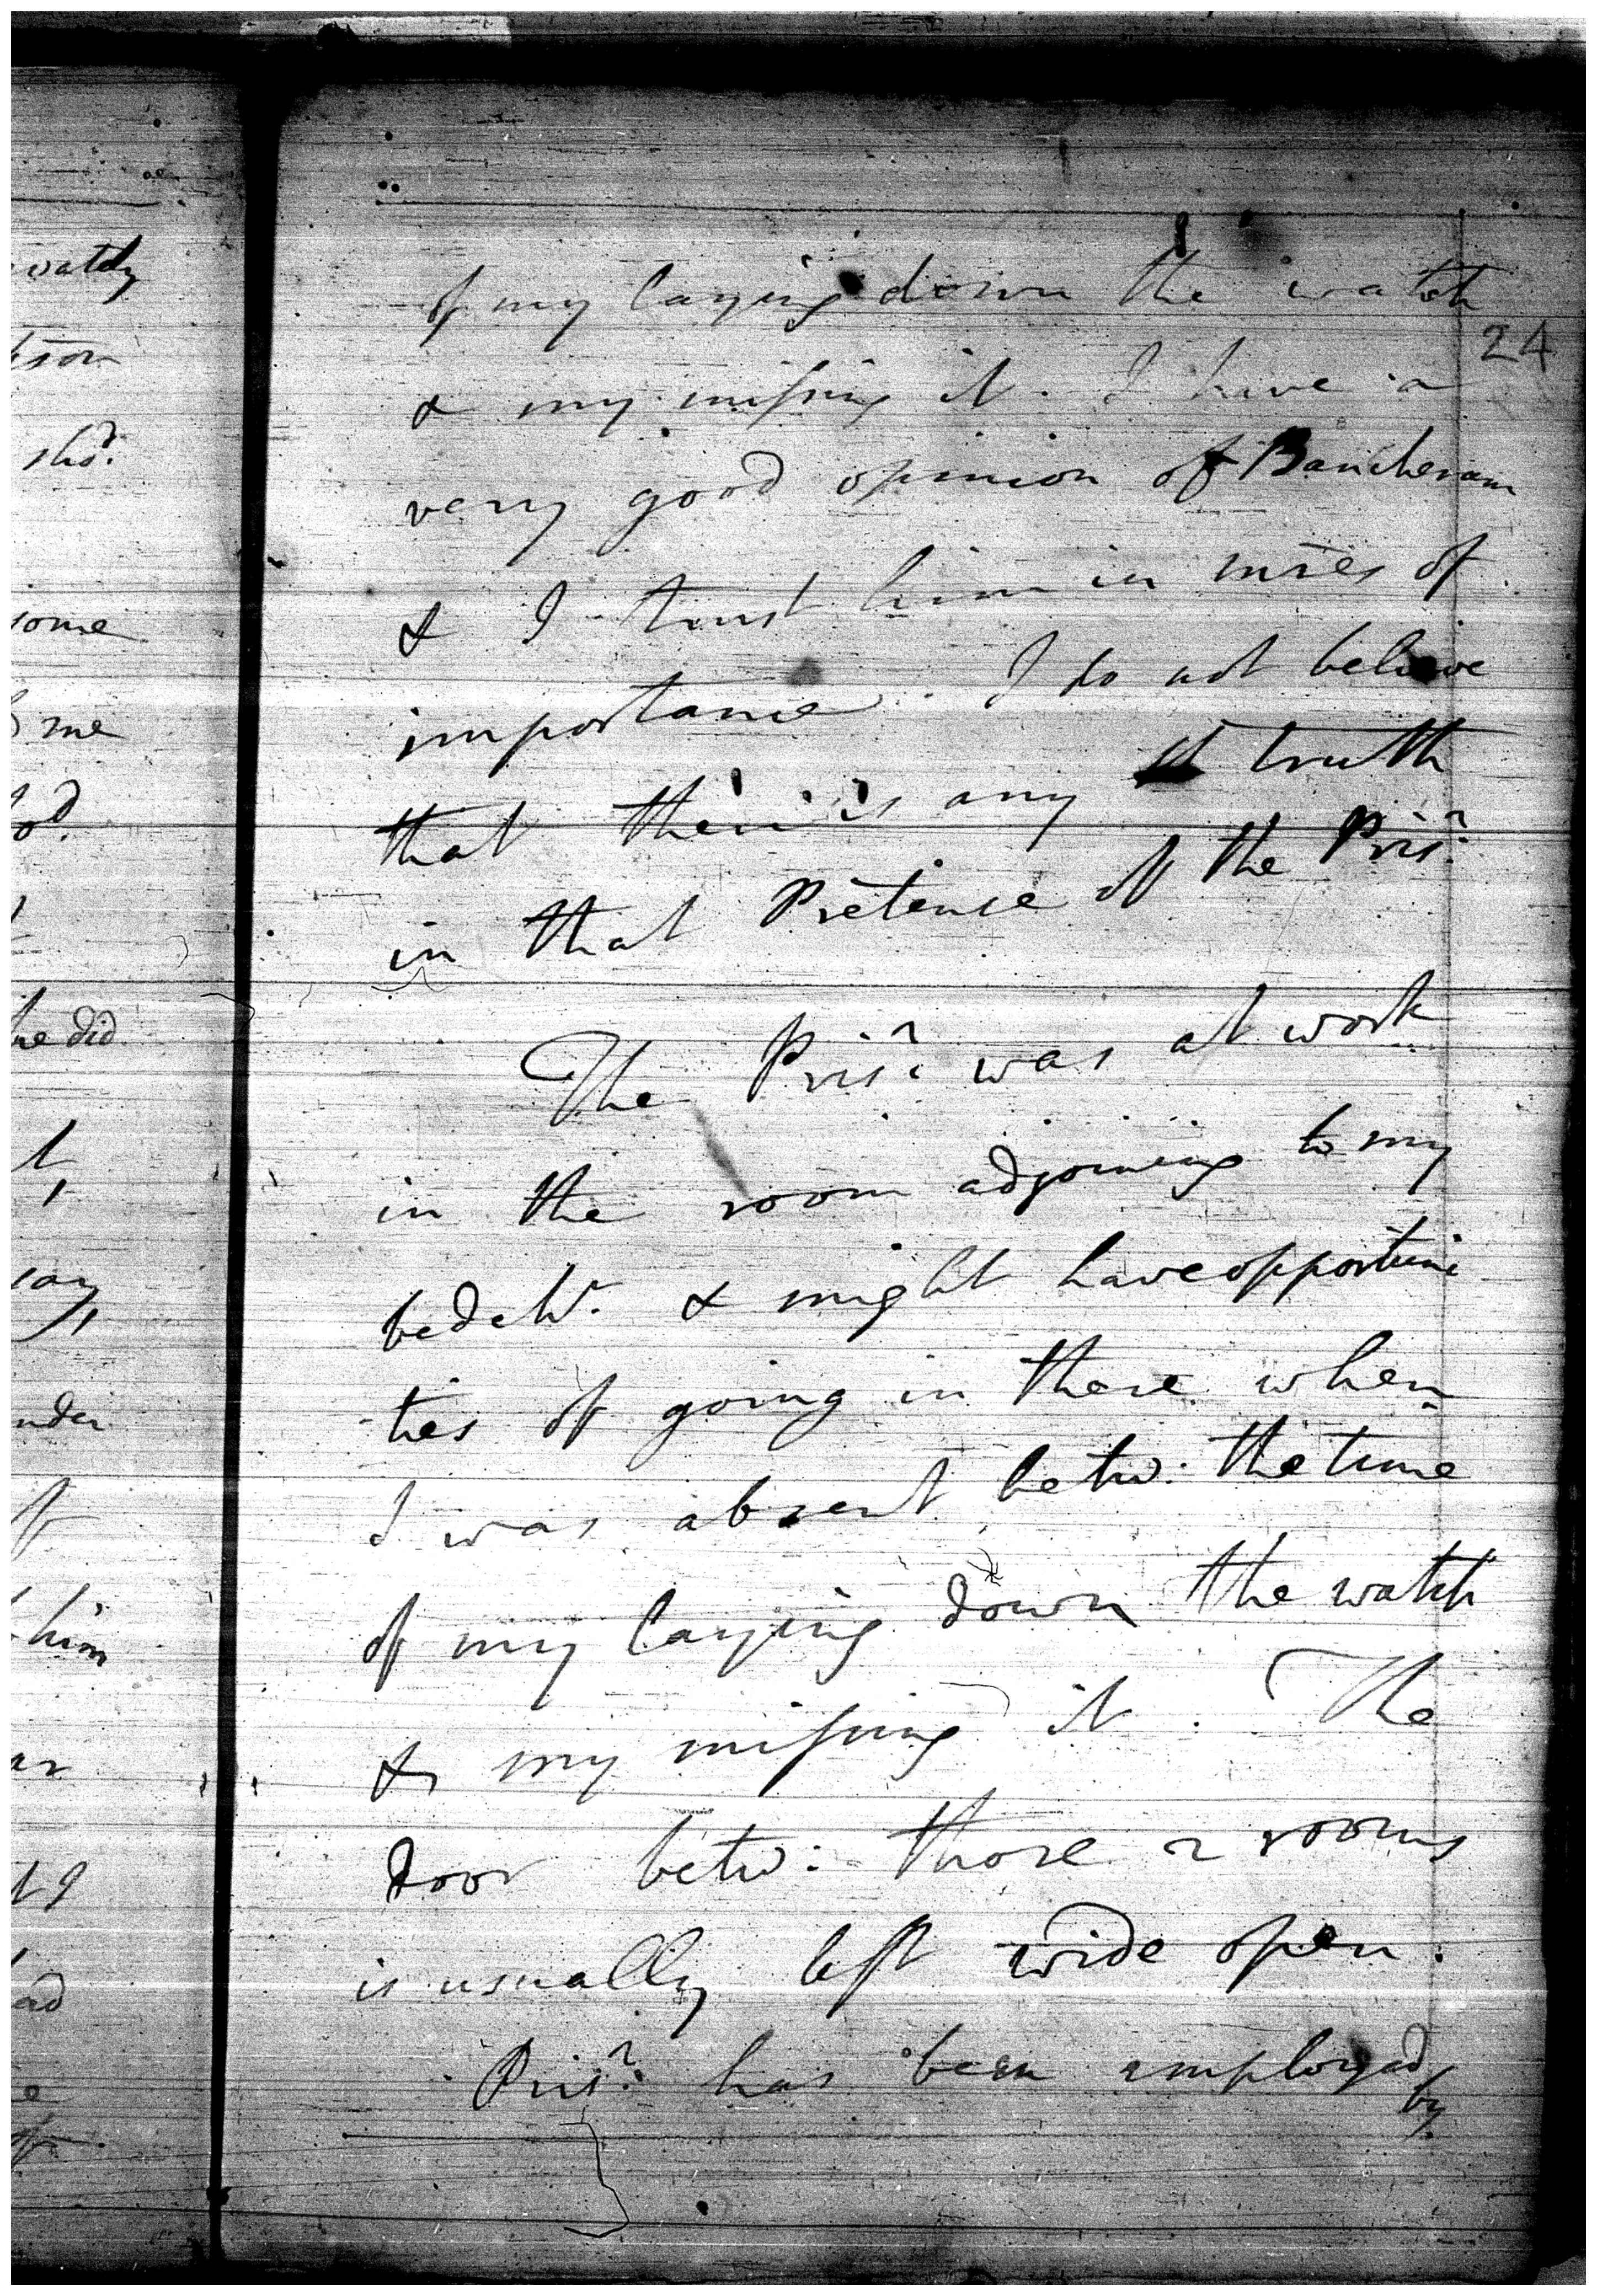 of my laying down the watch
24
& my missing it. I have a
very good opinion of Bancheram
& I trust him in mres of
importance. I do not believe
that there is any truth
in that Pretense of the Prisr.
The Prisr. was at work
in the room adjoining to my
bedchr. & might have opportuni
ties of going in there when
I was absent betw: the time
of my laying down the watch
& my missing it. The
door betw: those 2 rooms
is usually left wide open.
Prisr. has been employed
by
vately
some
me
he did
him